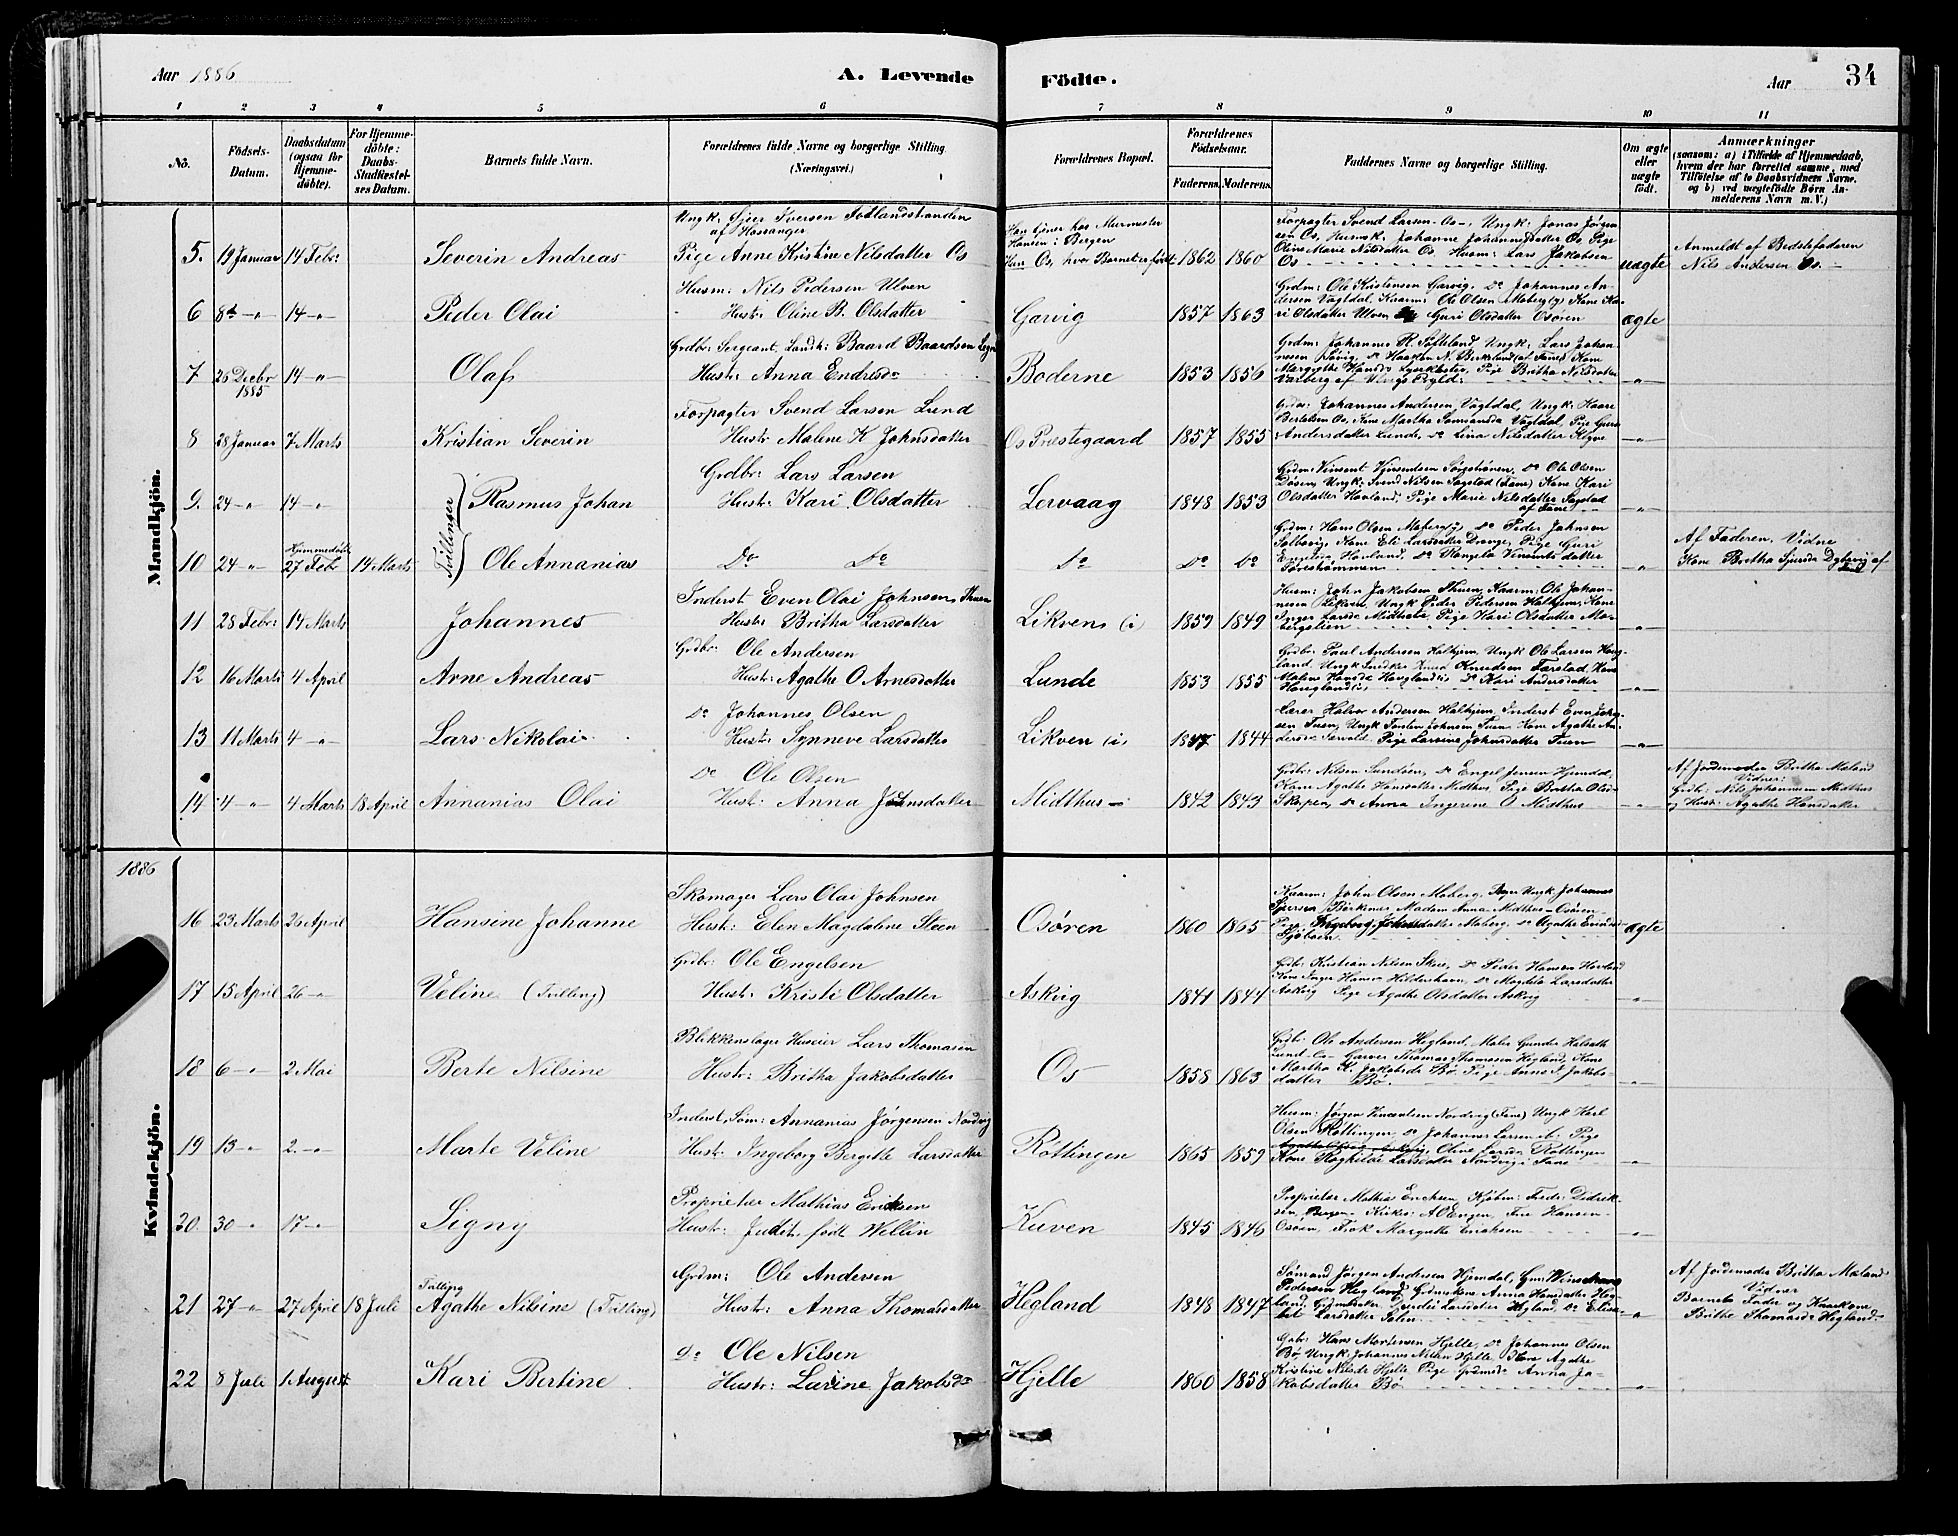 Aar 1886
A. Levende Födte.
Aar
34
1 2 3 4 5 6 7 8 9 10 11
No.
Födsels-Datum.
Daabsdatum (ogsaa for Hjemme-döbte).
For Hjemme-döbte: Daabs-Stadfæstel-ses Datum.
Barnets fulde Navn.
Forældrenes fulde Navne og borgerlige Stilling. (Næringsvei.)
Forældrenes Bopæl.
Forældrenes Födselsaar.
Faderens. Moderens.
Faddernes Navne og borgerlige Stilling.
Om ægte eller uægte födt.
Anmærkninger
(saasom: a) i Tilfælde af Hjemmedaab, hvem der har forrettet samme, med Tilföielse af to Daabsvidners Navne, og b) ved uægtefödte Børn Anmelderens Navn m. V.)
Mandkjön.
5. 19 Januar 14 Febr: Severin Andreas
Ungk: Iver Iversen
af Hosanger
Pige Anne Kristine Nilsdatter Os
Hansen i Bergen
Hun Os, hvor Barnet er født 1862 1860
Forpagter Svend Larsen Os, Ungk: Jonas Jørgen-
sen Os, Johanne Johannesdatter Os, Pige
Oline Marie Nilsdatter Os, Husm: Lars Jakobsen
Os
uægte
Anmeldt af Bedstefaderen
Nils Andersen Os.
6 8de 14 Peder Olai
Husm: Nils Pedersen Ulven
Hust: Oline B. Olsdatter
Garvig 1857 1863
Grdm: Ole Kristensen Garvig, Do Johannes An-
dersen Vagtdal, Kaarm: Ole Olsen Moberg
ri Olsdatter Ulven Guri Olsdatter Osøren
ægte
7 26 Decbr 1885 14 Olaf
Grdbr: Sergeant, Landh: Baard Baardsen
Hust: Anna Endresdr
Boderne 1853 1856
Grdm: Johannes R. Søfteland Ungk: Lars Johan-
nesen Søvig, Do Haagen N. Birkeland (af Fane) Kone
Pige Britha Nilsdatter
8 28 Januar 7 Marts Kristian Severin
Forpagter Svend Larsen Lund
Hustr Malene K Johnsdatter
Os Præstegaard 1857 1855
Johannes Andersen Vagtdal, Ungk: Haare
Bertelsen Os, Kone Martha Vagtdal, Pige Guri
Andersdatter Lunde, Do Lina Nilsdatter
9. 24 14 Tvillinger Rasmus Johan
Grdbr: Lars Larsen
Hust: Kari Olsdatter
Lervaag 1848 1853
Grdm: Vinsent Vinsentsen Do Ole Olsen
Døsen, Ungk: Svend Nilsen Sagstad (Fane) Kone Kari
Olsdatter Havland, Pige Marie Nilsdatter Sagstad
af Fane
10 24 Hjemmedøbt 27 Febr 14 Marts Ole Annanias
Do Do Do Do Do
Grdm: Hans Olsen Moberg Do Peder Johnsen
Kone Eli Larsdatter Drange, Pige Guri
Havland, Do Vinsentsdatter
Af Faderen, Vidne
Kone Britha
11 28 Febr: 14 Marts Johannes
Inderst Even Olai Johnsen Thuen
Hust: Britha Larsdatter
Likven (i) 1859 1849
Husm: John Jakobsen Thuen, Kaarm: Ole Johan-
nesen Likven, Ungk Peder Pedersen Halhjem, Kone
Inger Larsdr Midthus, Pige Kari Olsdatter Mo-
bergslien
12 16 Marts 4 April Arne Andreas
Grdbr: Ole Andersen
Hust: Agathe O Arnesdatter
Lunde 1853 1855
Grdbr: Paul Andersen Halhjem, Ungk Ole Larsen Haug-
land, Ungk Knudsen Farstad, Kone
Malene Do Kari Andersdatter
13 11 Marts 4 Lars Nikolai
Do Johannes Olsen
Hust: Synneve Larsdatter
Likven (i) 1847 1844
Lærer Halvor Andersen Halhjem, Inderst Even John-
sen Tuen, Ungk Torsten Johnsen Tuen, Kone Agathe An-
Pige Larsine Johnsdatter Tuen
14 4 4 Marts 18 April Annanias Olai
Do Ole Olsen
Hust: Anna Johnsdatter
Midthus 1842 1843
Grdbr: Nilsen Sundøen, Do Engel Jensen Hjemdal,
Kone Agathe Hansdatter Midthus, Pige Britha Olsd-
Do Anna Ingerine O Midthus
Af Jordemoder Britha Møland
Vidner:
Grdbr: Nils Johannesen Midthus
og Hust: Agathe Hansdatter
1886
Kvindekjön.
16 23 Marts 26 April Hansine Johanne
Skomager Lars Olai Johnsen
Hust: Elen Magdalene Steen
Osøren 1860 1865
Kaarm: John Olsen Moberg, Ungk Johannes
Madam Anna Midthus Osøren
Ingeborg Johnsdatter Moberg, Do Agathe
ægte
17 15 April 26 Veline (Tvilling)
Grdbr: Ole Engelsen
Hust: Kristi Olsdatter
Askvig 1841 1844
Grdbr: Kristian Nilsen Skeie, Do Peder Hansen Havland
Kone Inger Do Magdela Larsdatter
Askvig Pige Agathe Olsdatter Askvig
18 6 2 Mai Berte Nilsine
Blikkenslager Huseier Lars Thomasen
Hust: Britha Jakobsdatter
Os 1858 1863
Grdbr: Ole Andersen Hegland, Maler Gunder
Garver Thomas Thomasen Hegland, Kone
Martha K. Jakobsdr Bø, Pige Anna J. Jakobs-
datter Bø
19 13 2 Marte Veline
Inderst, Søm: Annanias Jørgensen Nordvig
Hust: Ingeborg Bergitte Larsdatter
Røttingen 1865 1859
Husm: Jørgen Vincentsen Nordvig (Fane) Ungk Karl
Olsen Røttingen, Do Johannes Larsen ib: Pige
Oline Larsdr Røttingen
Kone Raghilde Larsdatter Nordvig i Fane
20. 30 17 Signy
Proprietær Mathias Eriksen
Hust: Judit, født Wellin
Kuven 1845 1846
Proprietær Mathias Erichsen, Kjøbm: Fredr: Didrik-
sen, Bergen Kirkes: A O Engen, Frue Hansen
Osøren, Frøk Margrethe Erichsen
21 27 27 April 18 Juli Tvilling Agathe Nilsine (Tvilling)
Grdm: Ole Andersen
Hust: Anna Thomasdatter
Hegland 1848 1847
Sømand Jørgen Andersen Hjemdal,
Pedersen Hegland, Anna Hansdatter Heg-
land, Larsdatter Hegland, Do Elisa-
bet Larsdatter
Af Jordemoder Britha Møland
Vidner
Barnets Fader og Kaarkone
Britha Thomasdr Hegland
22 8 Juli 1 August Kari Bertine
Do Ole Nilsen
Hustr: Larine Jakobsdr
Hjelle 1860 1858
Gbr: Hans Mortensen Hjelle, Do Johannes Olsen
Bø, Ungk: Johannes Nilsen Hjelle, Kone Agathe
Kristine Nilsdr Hjelle Pige Anna Ja-
kobsdatter Bø